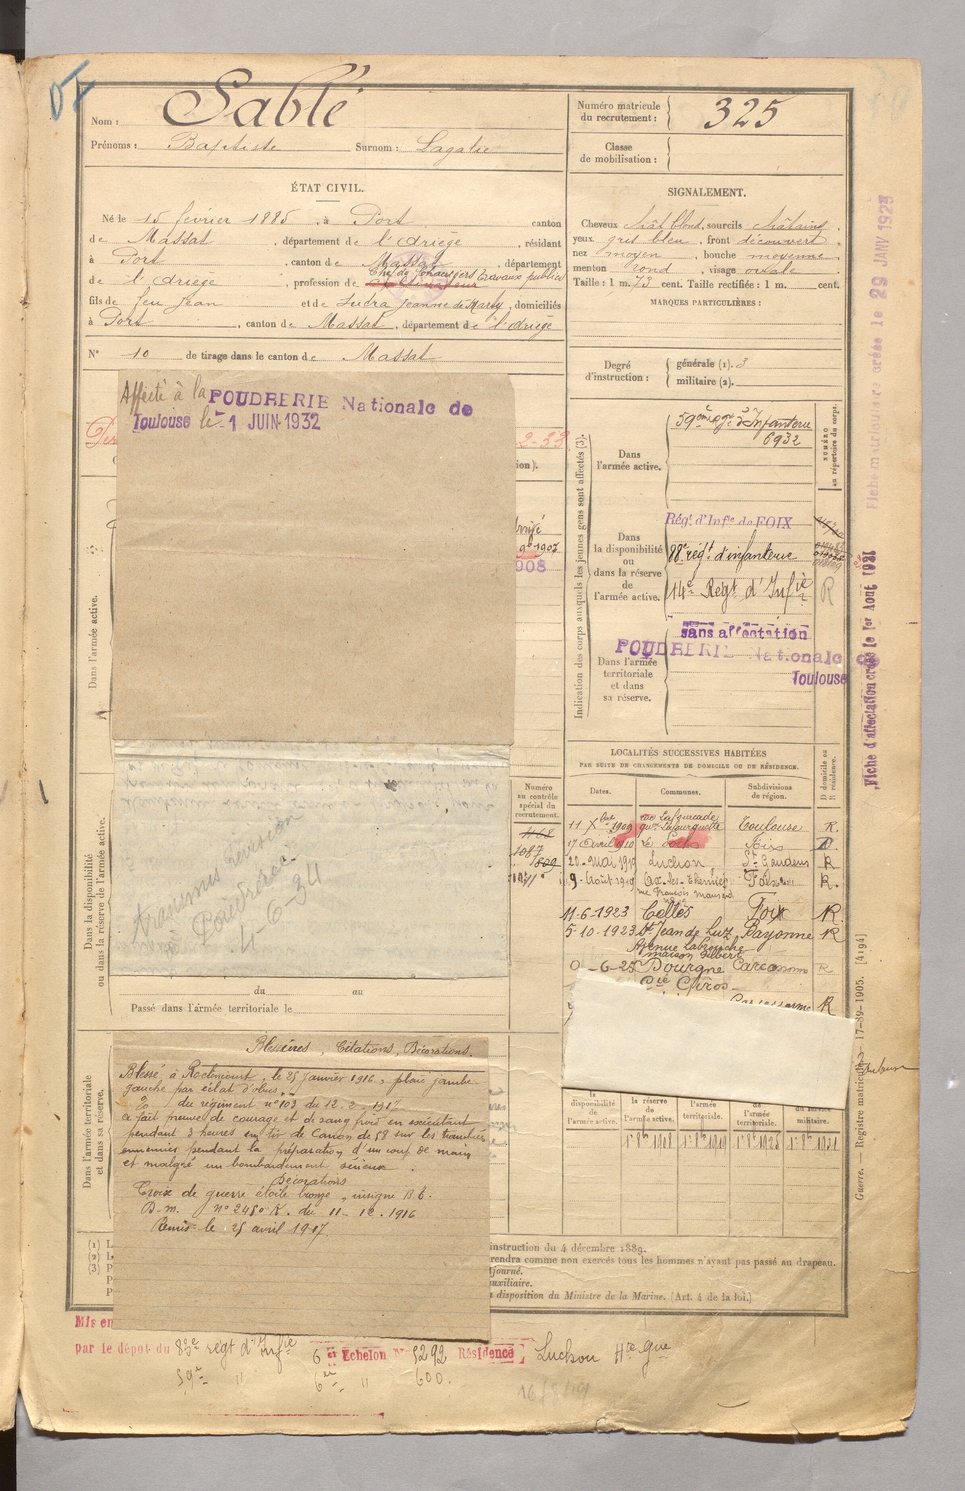 Nom : Sablé
Prénoms : Baptiste Surnom : Lagalie
Numéro matricule
du recrutement : 325
Classe
de mobilisation :
ÉTAT CIVIL.
Né le 15 février 1885, à Port canton
de Massat, département de l'Ariège, résidant
à Port, canton de Massat, département
de l'Ariège, profession de Travaux publics
fils de feu Jean et de Jeanne Marie, domiciliés
à Port, canton de Massat, département de l'Ariège
N° 10 de tirage dans le canton de Massat
SIGNALEMENT.
Cheveux chât blond, sourcils châtains
yeux gris bleu, front découvert,
nez moyen, bouche moyenne,
menton rond, visage ovale.
Taille : 1 m. 73 cent. Taille rectifiée : 1 m. cent.
MARQUES PARTICULIÈRES :
Degré
d'instruction :
générale (1). 3
militaire (2).
Affecté à la POUDRERIE Nationale de
Toulouse le -1 JUIN 1932
2-33
ion).
9e 1907
908
Dans l'armée active.
Dans la disponibilité
ou dans la réserve de l'armée active.
transmis révision
à Poudrerie
4-6-34
du au
Passé dans l'armée territoriale le
Dans l'armée territoriale
et dans sa réserve.
Indication des corps auxquels les jeunes gens sont affectés (3).
NUMÉRO
au répertoire du corps.
Dans
l'armée active.
59ème Régt d'Infanterie
6932
Dans
la disponibilité
ou
dans la réserve
de
l'armée active.
Régt d'Infie de FOIX
88e régt d'infanterie
14e Régt d'Infie
R
Dans l'armée
territoriale
et dans
sa réserve.
sans affectation
POUDRERIE Nationale de
Toulouse
LOCALITÉS SUCCESSIVES HABITÉES
PAR SUITE DE CHANGEMENTS DE DOMICILE OU DE RÉSIDENCE.
Numéro
au contrôle
spécial du
recrutement.
Dates. Communes. Subdivisions
de région.
D domicile ou
R résidence.
1087
1809
11 Xbre 1909 Toulouse R.
17 Avril 1910 Foix D
20 Mai 1919 Luchon St Gaudens R
9 Août 1919 Ax-les-Thermes Foix R.
11-6-1923 Celles Foix R.
5-10-1923 St Jean de Luz Bayonne R
maison Gilbert
-6-25 Dourgne Carcassonne R
Carcassonne R
Blessures, Citations, Décorations.
Blessé à Roclincourt, le 25 Janvier 1916, plaie jambe
gauche par éclat d'obus.
du régiment n° 103 du 12.2.1917
a fait preuve de courage et de sang froid en exécutant
pendant 3 heures un tir de Canon de 58 sur les tranchées
ennemies pendant la préparation d'un coup de main
et malgré un bombardement sérieux.
Décorations
Croix de guerre étoile bronze, insigne B.C.
D.m. n° 2450 K. du 11.12.1916
Remis le 25 avril 1917
la
disponibilité
de
l'armée active.
la réserve
de
l'armée active.
l'armée
territoriale.
de
l'armée
territoriale.
du service
militaire.
1er 8bre 1908 1er 8bre 1919 1er 8bre 1925 1er 8bre 1931
(1) L
(2) L
(3) P
P
P
instruction du 4 décembre 1889.
rendra comme non exercés tous les hommes n'ayant pas passé au drapeau.
djourné.
auxiliaire.
disposition du Ministre de la Marine. (Art. 4 de la loi.)
Mis en
par le dépôt du 83e régt d'Infie 6e Echelon N° 5292 Résidence Luchon Hte Gne
59e " 6e " 600.
Fiche matriculaire créée le 29 JANV 1925
Fiche d'affectation créée le 1er Août 1921
Guerre. — Registre matricule. 17-89-1905. [4194]